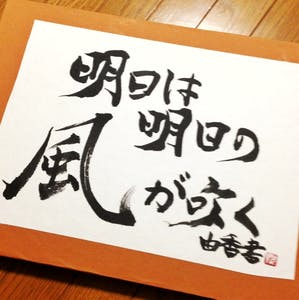 明日は
明日の
風が吹く
由香書